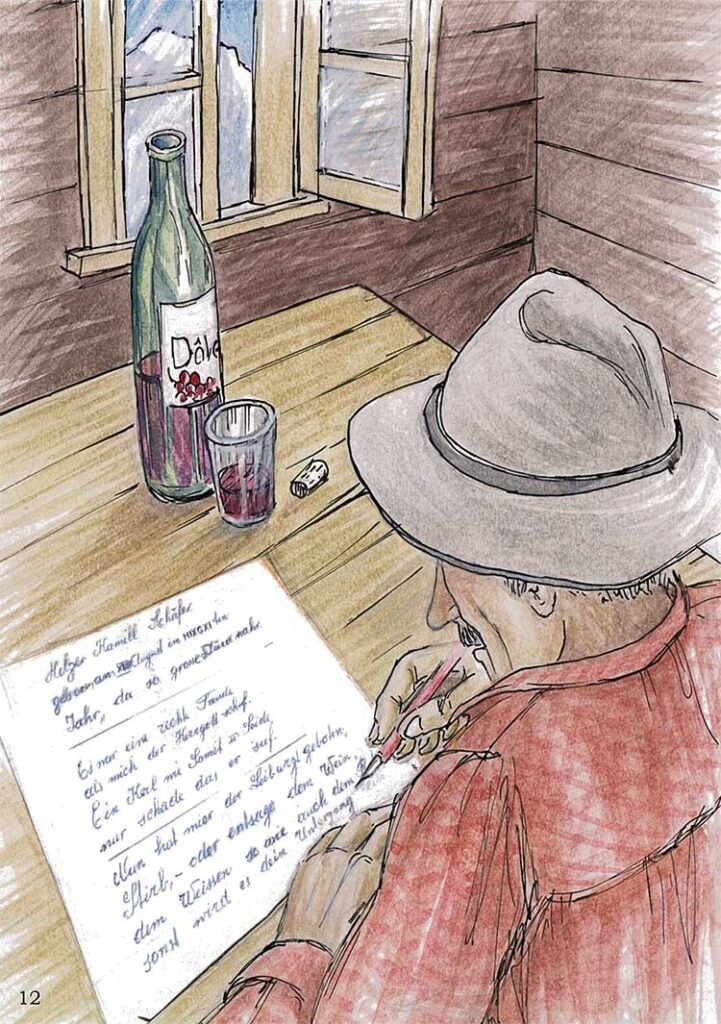 Dôle
Helzer Kamill Schäfer
geboren am August im ten
Jahr, da so grosse Stürce nahr.
Es nar eine rechte Freude
als mich der Herrgott schuf.
Ein Kerl mi Samit so Seide,
nur schade das er suf.
Nun hat mier der Leiburzt geboten,
Stirb,- oder entsage dem Wein
dem Weissen so wie auch dem
sonst wird es dein Untergang
12